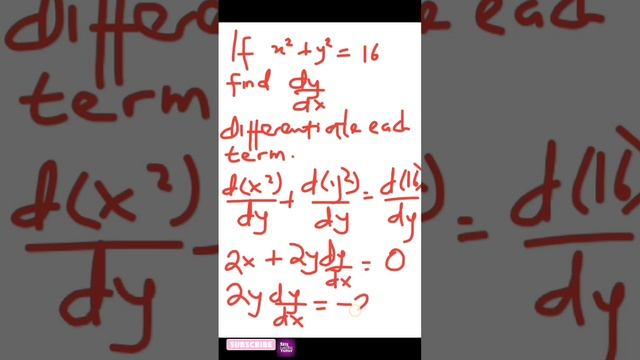 If x² + y² = 16
find dy/dx
differentiate each
term.
d(x²)/dy + d(y²)/dy = d(16)/dy
2x + 2y dy/dx = 0
2y dy/dx = -2
SUBSCRIBE